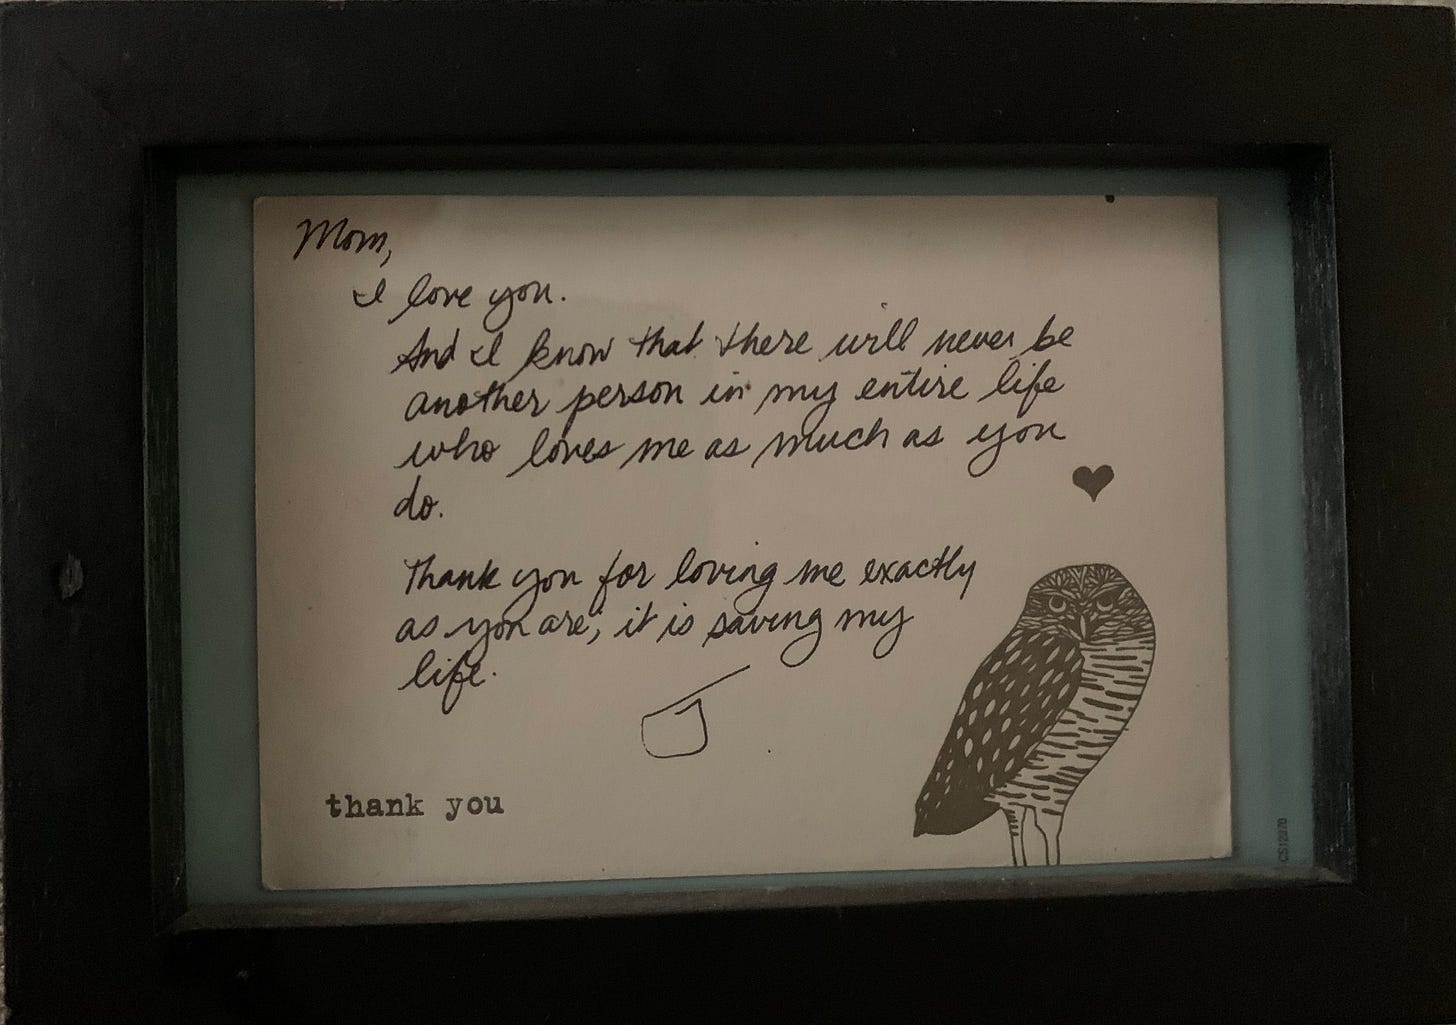 Mom,
I love you.
And I know that there will never be
another person in my entire life
who loves me as much as you
do.
Thank you for loving me exactly
as you are, it is saving my
life.
thank you